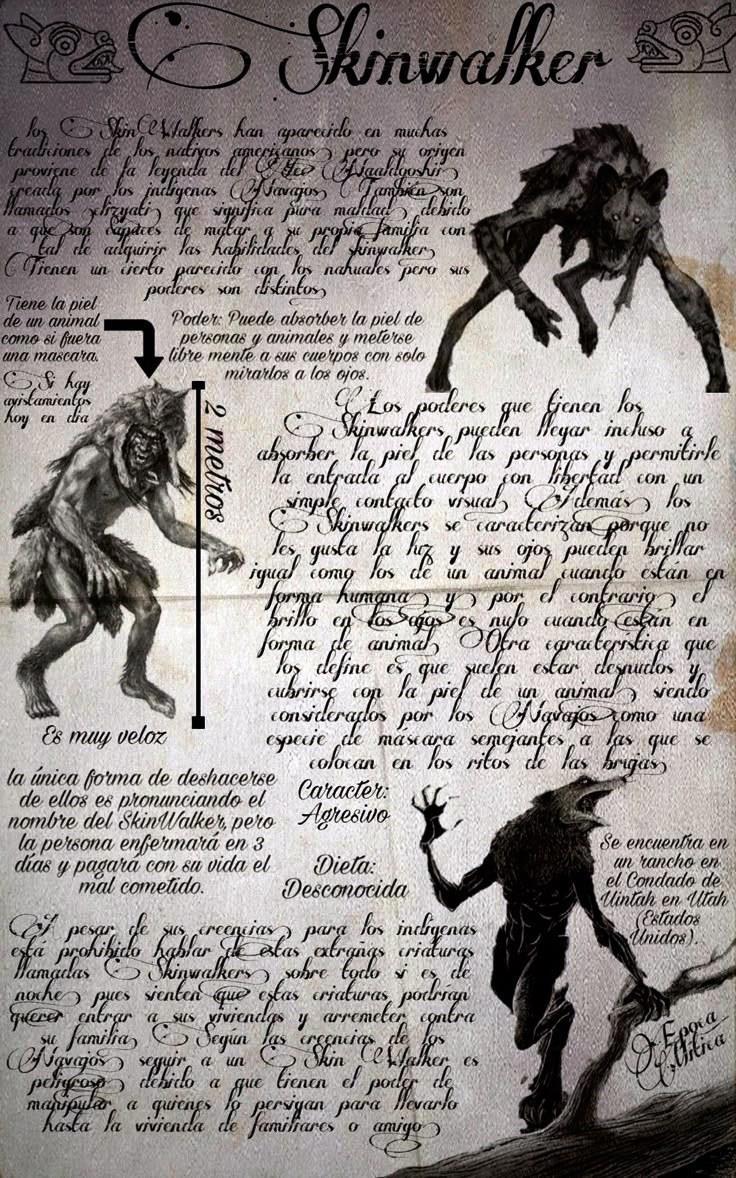 Skinwalker
los SkinWalkers han aparecido en muchas
tradiciones de los nativos americanos pero su origen
proviene de la leyenda del Yee Naaldooshii
creada por los indigenas Navajos También son
llamados clizyati que significa pura maldad debido
a que son capaces de matar a su propia familia con
tal de adquirir las habilidades del skinwalker
Tienen un cierto parecido con los nahuales pero sus
poderes son distintos
Tiene la piel
de un animal
como si fuera
una mascara.
Poder: Puede absorber la piel de
personas y animales y meterse
libre mente a sus cuerpos con solo
mirarlos a los ojos.
Si hay
avistamientos
hoy en dia
2 metros
Los poderes que tienen los
Skinwalkers pueden llegar incluso a
absorber la piel de las personas y permitirle
la entrada al cuerpo con libertad con un
simple contacto visual Además los
Skinwalkers se caracterizan porque no
les gusta la luz y sus ojos pueden brillar
igual como los de un animal cuando están en
forma humana y por el contrario el
brillo en los ojos es nulo cuando están en
forma de animal Otra característica que
los define es que suelen estar desnudos y
cubrirse con la piel de un animal siendo
considerados por los Navajos como una
especie de máscara semejantes a las que se
colocan en los ritos de las brujas
Es muy veloz
la única forma de deshacerse
de ellos es pronunciando el
nombre del SkinWalker, pero
la persona enfermará en 3
días y pagará con su vida el
mal cometido.
Caracter:
Agresivo
Dieta:
Desconocida
Se encuentra en
un rancho en
el Condado de
Uintah en Utah
(Estados
Unidos).
A pesar de sus creencias para los indígenas
está prohibido hablar de estas extrañas criaturas
llamadas Skinwalkers sobre todo si es de
noche pues sienten que estas criaturas podrían
querer entrar a sus viviendas y arremeter contra
su familia Según las creencias de los
Navajos seguir a un Skin Walker es
peligroso debido a que tienen el poder de
manipular a quienes lo persigan para llevarlo
hasta la vivienda de familiares o amigo
Epoca
Mitica